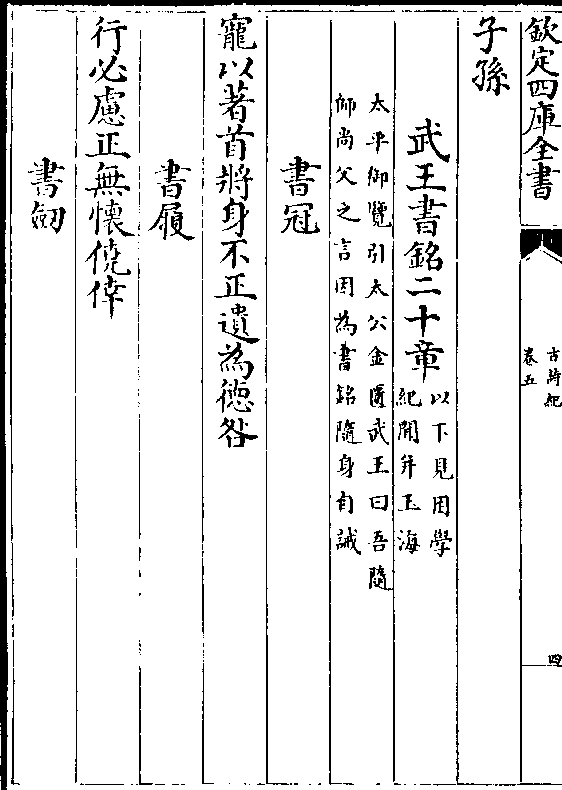 欽定四庫全書
古詩紀
卷五
四
子孫
武王書銘二十章
以下見困學
紀聞并玉海
太平御覽引太公金匱武王曰吾隨
師尚父之言因為書銘隨身自誡
書冠
寵以著首將身不正遺為德咎
書履
行必慮正無懷僥倖
書劒